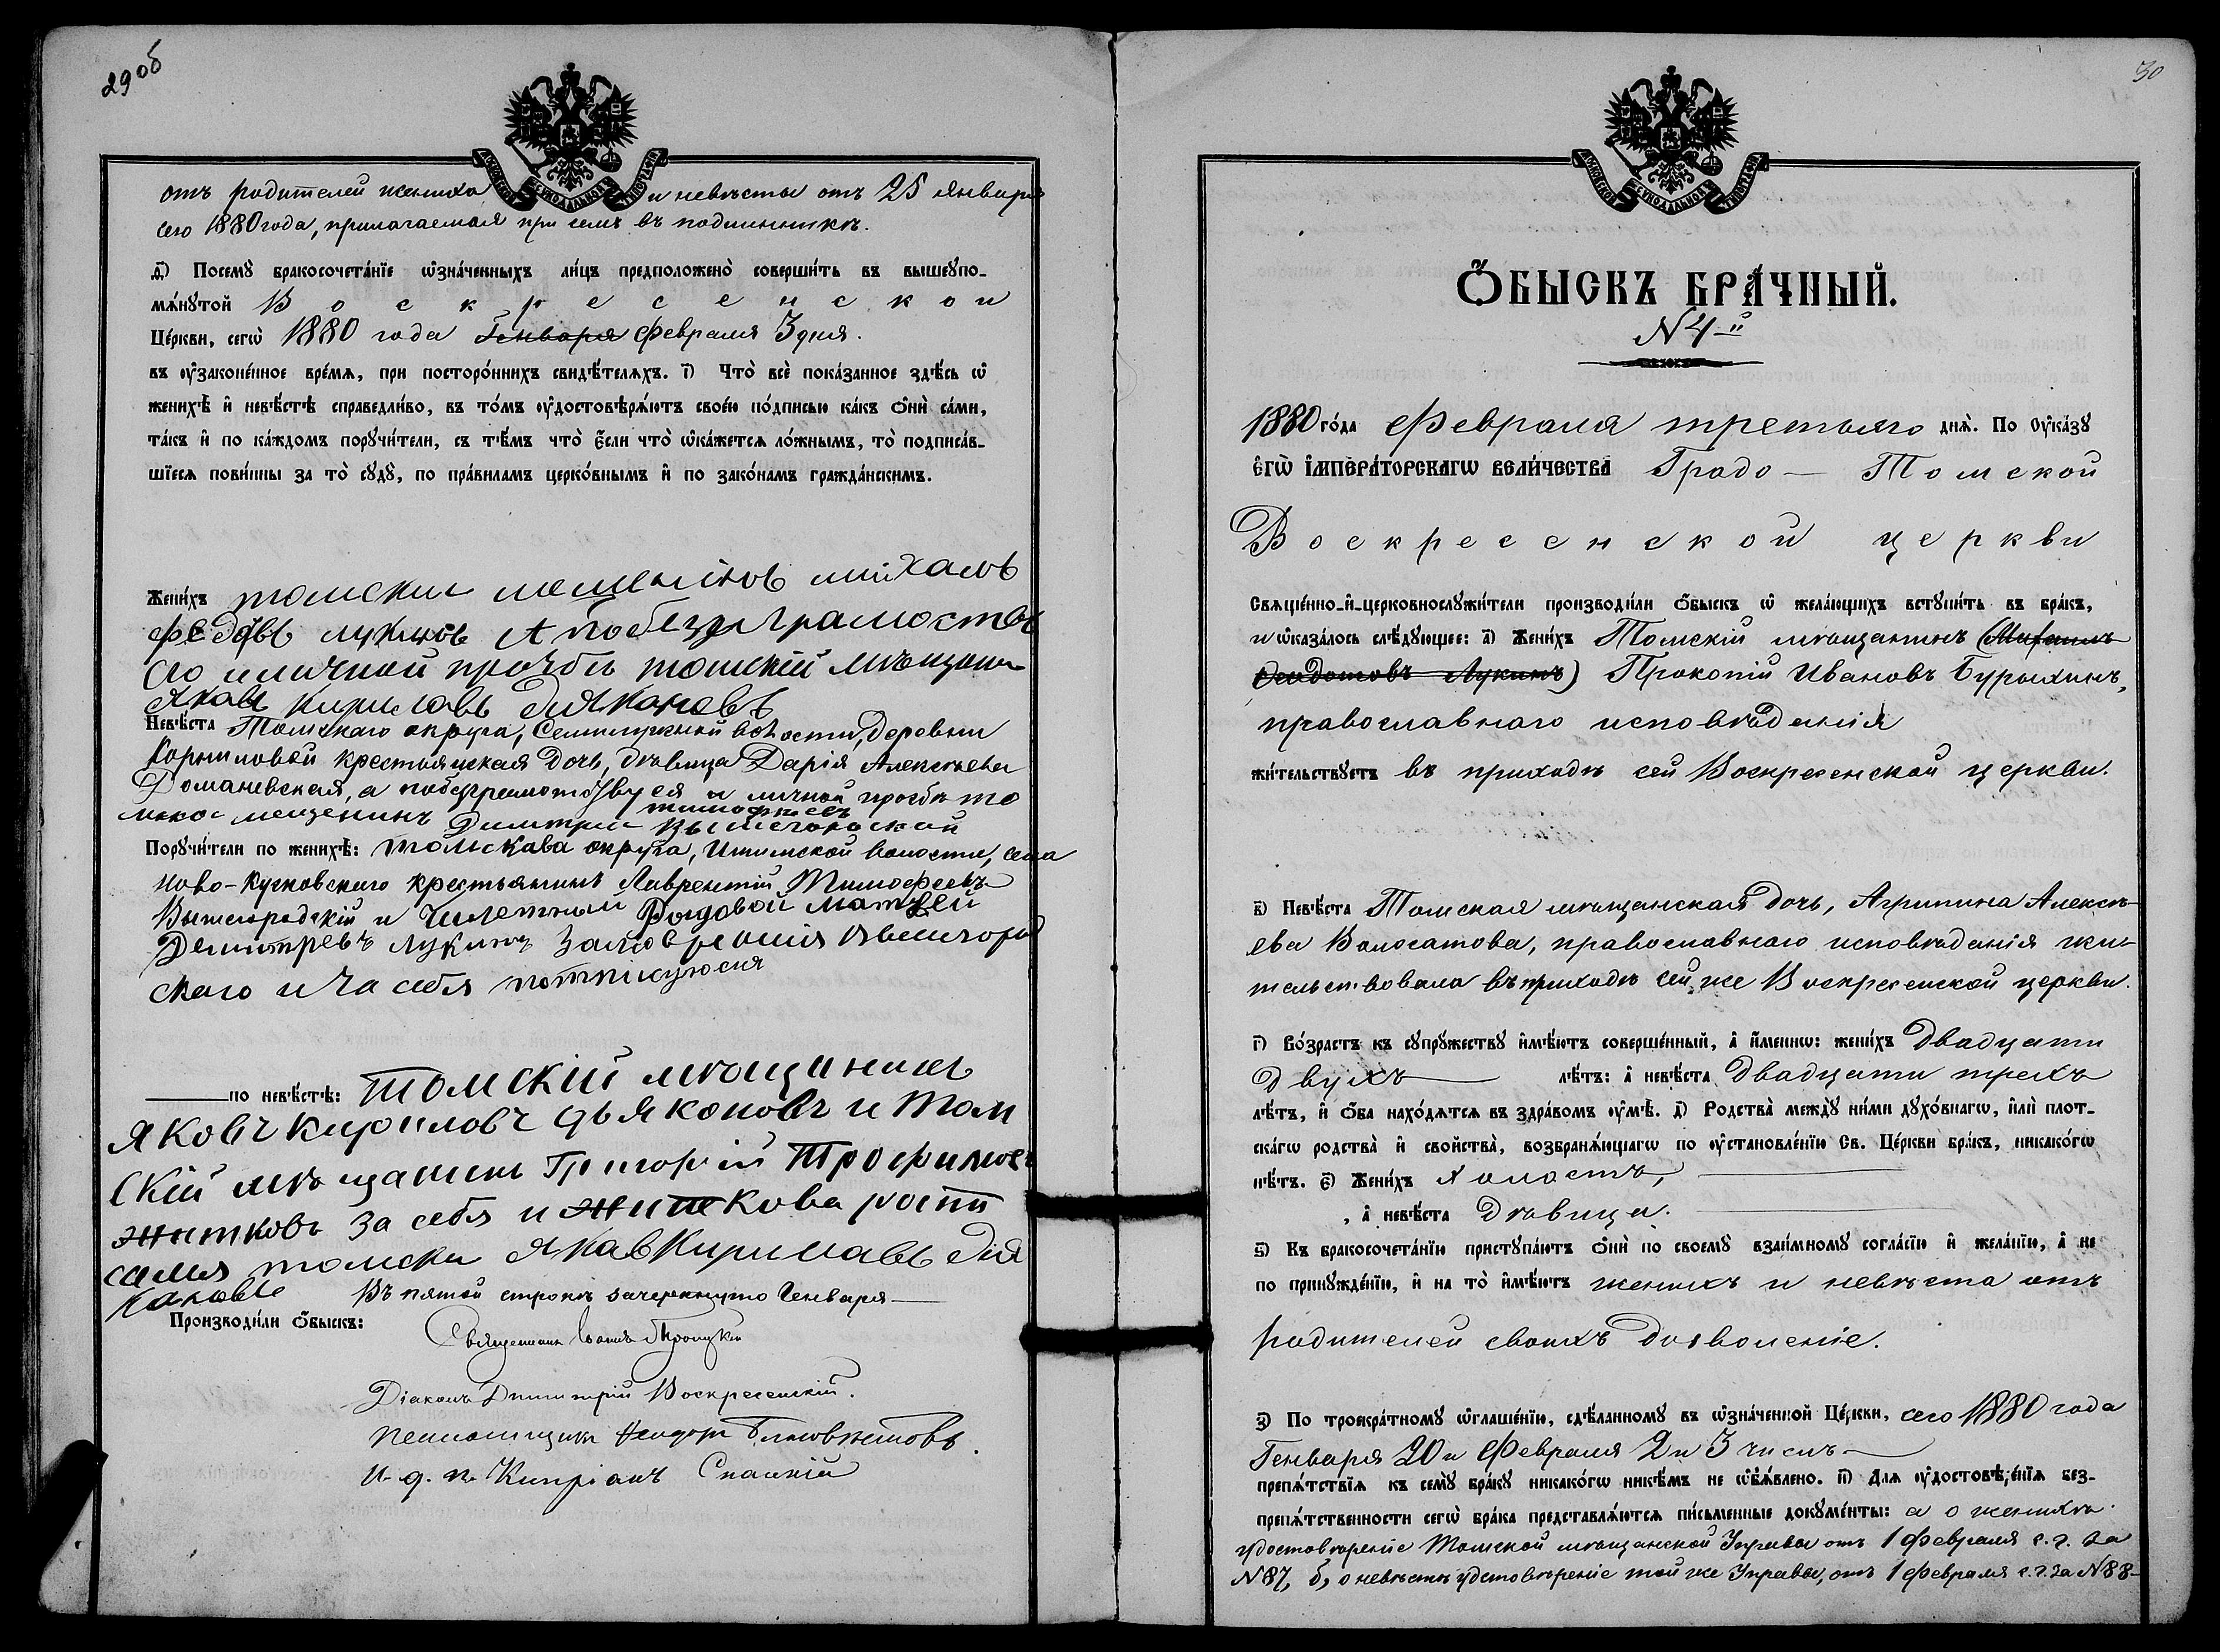 29об
отъ родителей жениха и невѣсты отъ 25 Января
сего 1880 года, прилагаемая при семъ въ подлинникѣ.
д҃) Посемꙋ̀ бракосочета́нїе ѡ҆зна́ченныхъ ли́цъ предположено̀ соверши́ть въ вышеꙋпо-
мѧ́нꙋтой Воскресенской
Це́ркви, сегѡ̀ 1880 года Генваря февраля 3 дня.
въ ᲂу҆зако́ненное вре́мѧ, при посторо́ннихъ свидѣ́телѧхъ. і҃) Что̀ всѐ пока́занное здѣ́сь ѡ҆
женихѣ̀ и҆ невѣ́стѣ справедли́во, въ то́мъ ᲂу҆достовѣрѧ́ютъ свое́ю по́дписью ка́къ ѻ҆нѝ са́ми,
та́къ и҆ по ка́ждомъ порꙋчи́тели, съ тѣ́мъ что̀ є҆́сли что̀ ѡ҆ка́жетсѧ ло́жнымъ, то̀ подписа́в-
шїесѧ пови́нны за то̀ сꙋдꙋ̀, по пра́виламъ церко́внымъ и҆ по зако́намъ гражда́нскимъ.
Жени́хъ томски мещенінъ михаилъ
федовъ лукинъ А побезграмоству
его иличной прозби томскій мѣщани
Яковъ Кирилавъ Дияконовъ
Невѣ́ста Томскаго округа, Семилужной волости, деревни
Корниловой крестьянская дочь, дѣвица Дарія Алексѣева
Романевская, а побезграмотству ея и личной прозбѣ то
мской мещенинъ Димтрии тимофиевъ Вышегородской
Порꙋчи́тели по женихѣ̀: томьскава округа, Ишимской волости, села
Ново-Кусковскаго крестьянинъ Лаврентій Тимофеевъ
Вышегородскій и Рядовой матвей
Демитревъ лукинъ за Ввышегоро
скаго и за себя потписуюсия
по невѣ́стѣ: томскій мѣщининъ
Яковъ Кириловъ дьяконовъ и том
скій мѣщанинъ Григорій Трофимов
житковъ за себя и житкова роспи
салия томски Якав Кирилавъ Дия
каковъ Въ пятой строкѣ зачеркнуто Генваря
Производи́ли ѻ҆́быскъ:
Священникъ Іоаннъ Троицкій
Діаконъ Димитрій Воскресенскій.
Псаломщикъ Феодоръ
И. д. п. Кипріанъ Спасскій
30
ѺБЫСКЪ БРАЧНЫЙ.
N 4-й
1880 го́да Февраля третьяго днѧ̀. По Оу҆ка́зꙋ
Є҆гѡ̀ І҆мпера́торскагѡ вели́чества Градо - Томской
Воскресенской церкви
Свѧще́нно-и҆-церковнослꙋжи́тели производи́ли ѻ҆́быскъ ѡ҆ жела́ющихъ встꙋпи́ть въ бра́къ,
и ѡ҆каза́лось слѣ́дꙋющее: а҃) Жени́хъ Томскій мѣщанинъ (Михаилъ
Феодотовъ Лукинъ) Прокопій Ивановъ Бурыхинъ,
православнаго исповѣданія
жи́тельствꙋетъ въ приходѣ сей Воскресенской церкви.
в҃) Невѣ́ста Томская мѣщанская дочь, Агрипина Алексѣ-
ева Волосатова, православнаго исповѣданія жи-
тельствовала въ приходѣ сей же Воскресенской церкви.
г҃) Во́зрастъ къ сꙋпрꙋ́жествꙋ и҆мѣ́ютъ соверше́нный, а҆ и҆́меннѡ: жени́хъ двадцати
двухъ лѣ́тъ: а҆ невѣ́ста двадцати трехъ
лѣ́тъ, и҆ ѻ҆́ба нахо́дѧтсѧ въ здра́вомъ ᲂу҆мѣ̀. д҃) Родства̀ междꙋ̀ ни́ми дꙋхо́внагѡ, и҆лѝ плот-
ска́гѡ родства̀ и҆ сво́йства̀, возбранѧ́ющагѡ по ᲂу҆становле́нїю Св. Це́ркви бра́къ, никако́гѡ
нѣ́тъ. є҃) Жени́хъ холостъ,
, а҆ невѣ́ста дѣвица.
ѕ҃) Къ бракосочета́нїю пристꙋпа́ютъ ѻ҆нѝ по своемꙋ̀ взаи́мномꙋ согла́сїю и҆ жела́нїю, а҆ не
по принꙋжде́нїю, и҆ на то̀ и҆мѣ́ютъ женихъ и невѣста отъ
родителей своихъ дозволеніе.
з҃) По троекра́тномꙋ ѡ҆глаше́нїю, сдѣ́ланномꙋ въ ѡ҆зна́ченной Це́ркви, сего 1880 года
Генваря 20 и Февраля 2 и 3 числъ
препѧ́тствїѧ къ семꙋ̀ бра́кꙋ никако́гѡ никѣ́мъ не ѡ҆б̾ѧ́влено. и҃) Длѧ ᲂу҆достовѣре́нїѧ без-
препѧ́тственности сегѡ̀ бра́ка представлѧ́ютсѧ пи́сьменные докꙋме́нты: а о женихѣ
удостовѣреніе Томской мѣщанской Управы отъ 1 Февраля с. г. за
N 87, б, о невѣстѣ удстовѣреніе той же Управы, отъ 1 Февраля с. г. за N 88-